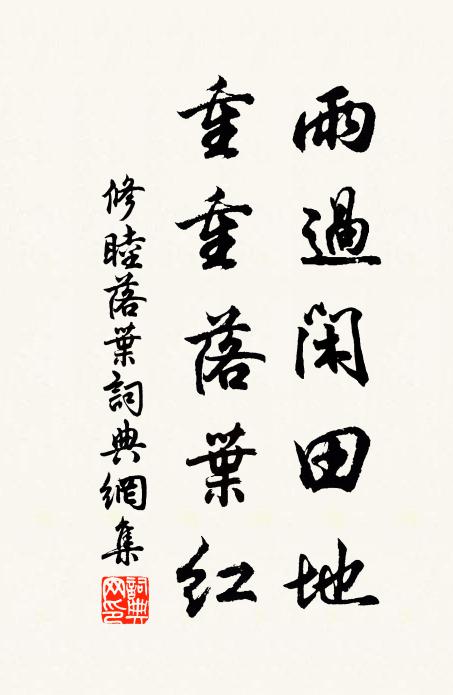 雨過閑田地
重重落葉紅
修睦落葉詞典網集
詞典網印